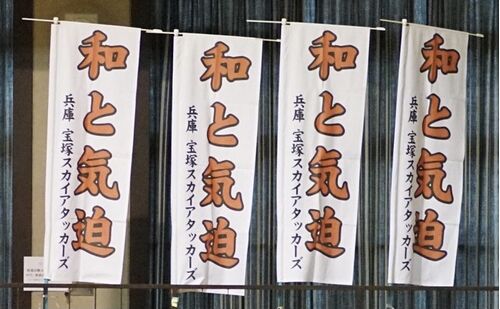 和と気迫
兵庫 宝塚スカイアタッカーズ
和と気迫
兵庫 宝塚スカイアタッカーズ
和と気迫
兵庫 宝塚スカイアタッカーズ
和と気迫
兵庫 宝塚スカイアタッカーズ